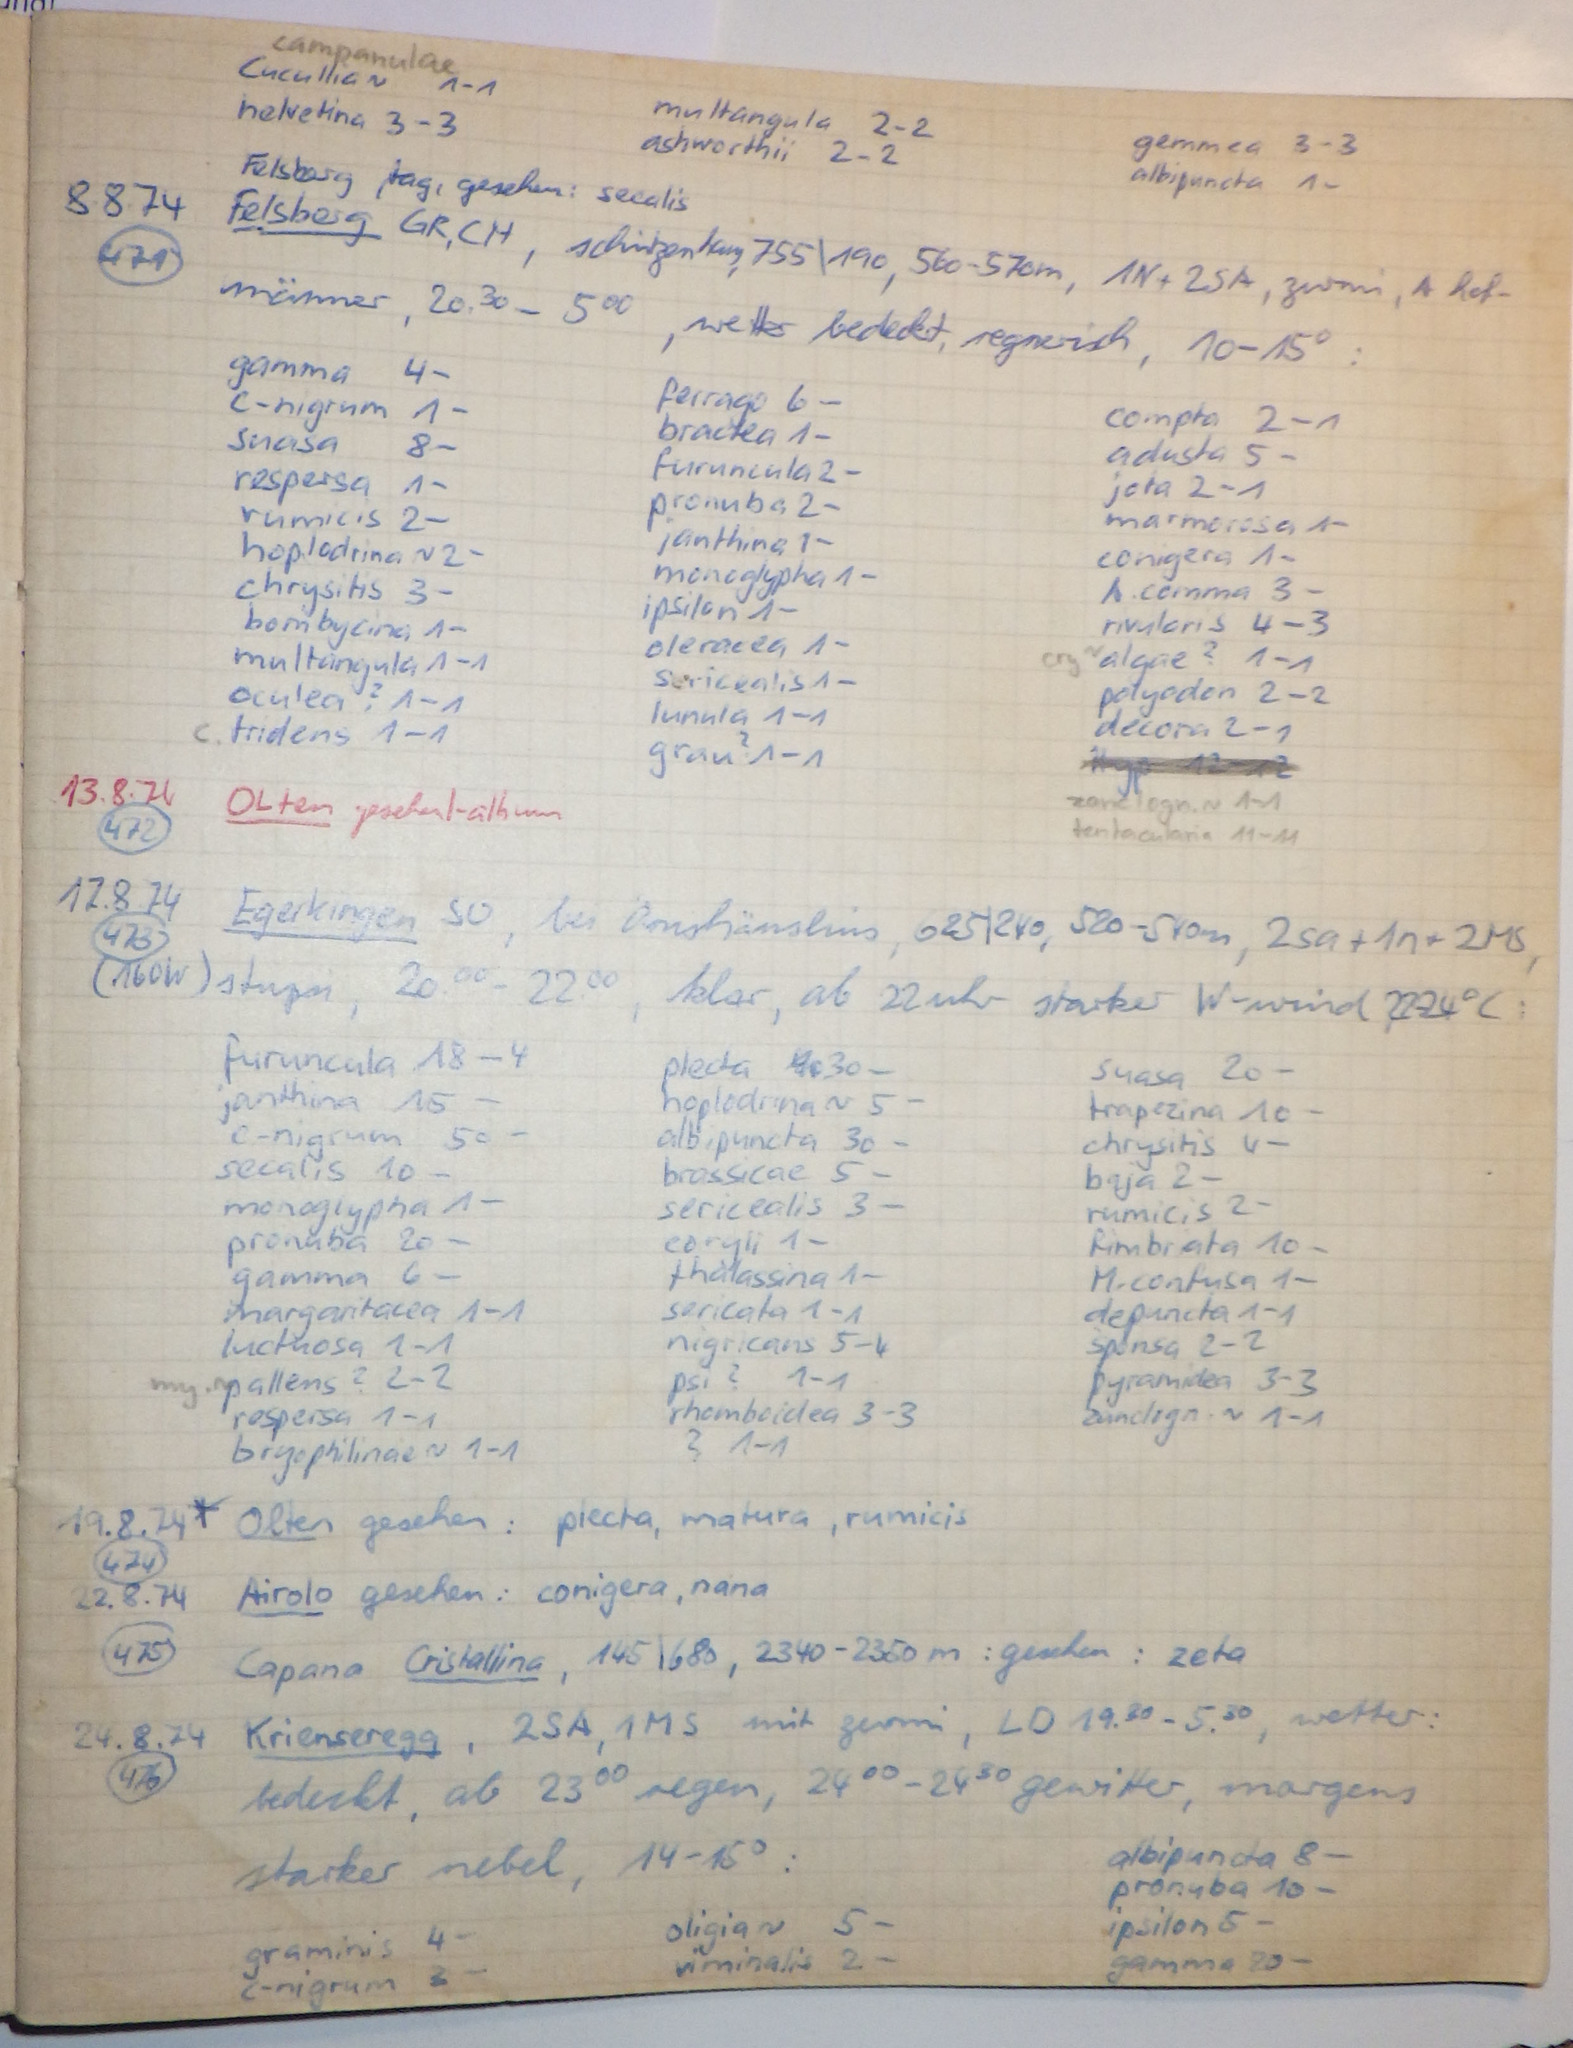 campanulae
Cucullia ~ 1-1
helvetina 3-3 multangula 2-2 gemmea 3-3
ashworthii 2-2 albipuncta 1-
Felsberg tag, gesehen: secalis
8 8 74 Felsberg GR, CH, 755\190, 560-570m, 1N+2SA, zurmi, A. hof-
471
männer, 20.30 - 5 00, wetter bedeckt, regnerisch, 10-15°:
gamma 4- ferrago 6- compta 2-1
c-nigrum 1- bractea 1- adusta 5-
suasa 8- furuncula 2- jota 2-1
respersa 1- pronuba 2- marmorosa 1-
rumicis 2- janthina 1- conigera 1-
hoplodrina ~ 2- monoglypha 1- A. comma 3-
chrysitis 3- ipsilon 1- rivularis 4-3
bombycina 1- oleracea 1- cry ~ algae? 1-1
multangula 1-1 sericealis 1- polyodon 2-2
oculea? 1-1 lunula 1-1 decora 2-1
c. tridens 1-1 grau? 1-1 Hyp 12-12
zanclogn. ~ 1-1
tentacularia 11-11
13.8.74 OLten gesehen-album
472
17.8.74 Egerkingen SO, bei 625\240, 520-540m, 2sa+1n+2MS,
473
(160W) stupsi, 20.00 - 22.00, klar, ab 22 uhr starker W-wind, °C:
furuncula 18-4 plecta 30- suasa 20-
janthina 15- hoplodrina ~ 5- trapezina 10-
c-nigrum 50- albipuncta 30- chrysitis 4-
secalis 10- brassicae 5- baja 2-
monoglypha 1- sericealis 3- rumicis 2-
pronuba 20- coryli 1- fimbriata 10-
gamma 6- thalassina 1- M. confusa 1-
margaritacea 1-1 sericata 1-1 depuncta 1-1
luctuosa 1-1 nigricans 5-4 sponsa 2-2
my. ~ pallens? 2-2 psi? 1-1 pyramidea 3-3
respersa 1-1 rhomboidea 3-3 zanclogn. ~ 1-1
bryophilinae ~ 1-1 ? 1-1
19.8.74* Olten gesehen: plecta, matura, rumicis
474
22.8.74 Airolo gesehen: conigera, nana
475 Capana Cristallina, 145\680, 2340-2350m: gesehen: zeta
24.8.74 Krienseregg, 2SA, 1MS mit zurmi, LD 19.30 - 5.30, wetter:
476
bedeckt, ab 23 00 regen, 24 00 - 24 30 gewitter, morgens
starker nebel, 14-15°: albipuncta 8-
pronuba 10-
graminis 4- oligia ~ 5- ipsilon 5-
c-nigrum 3- viminalis 2- gamma 20-